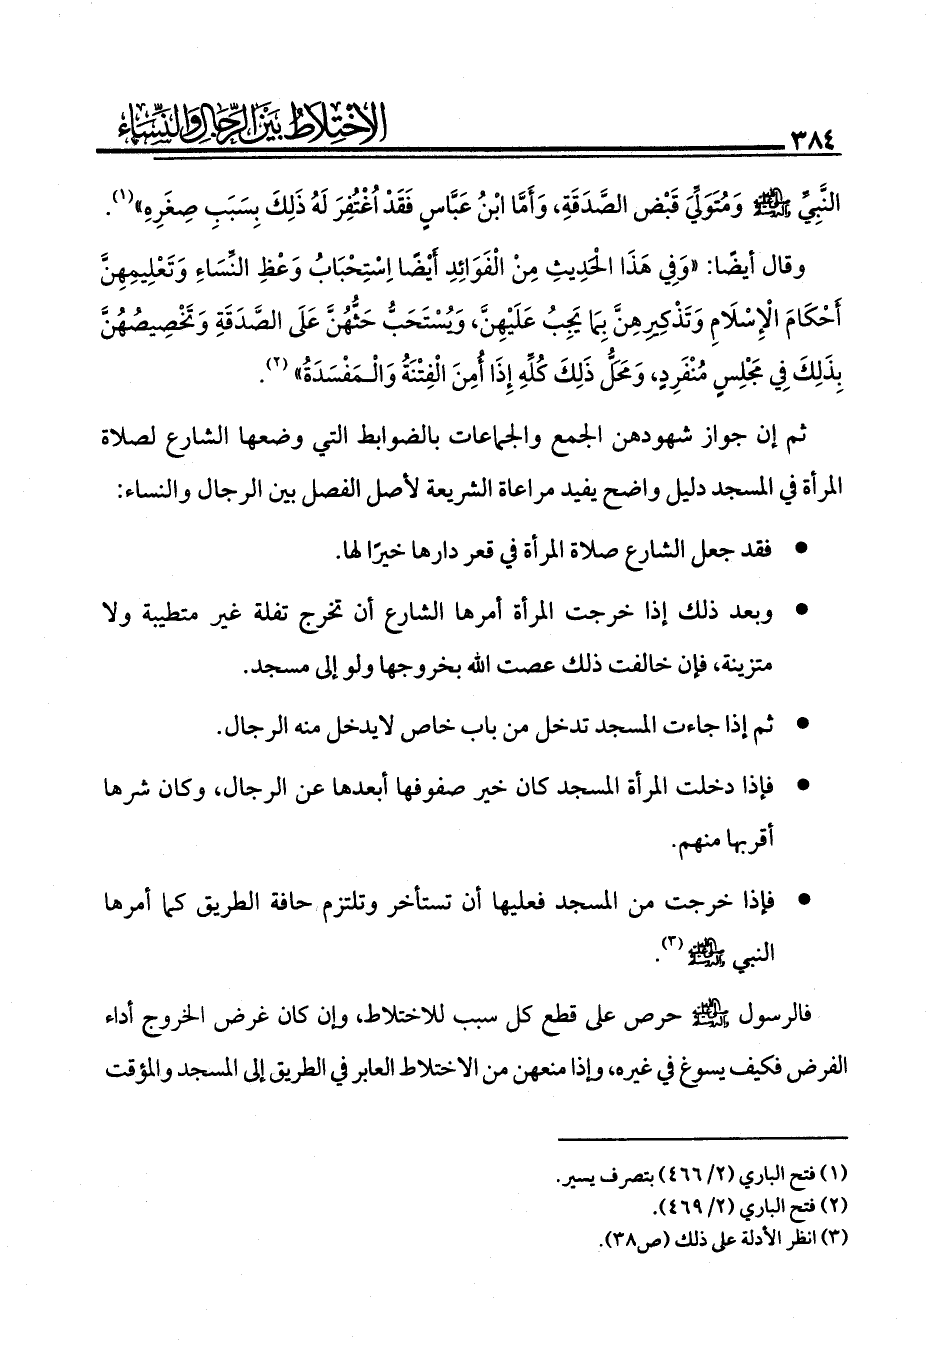 ٣٨٤
الاختلاط بين الرجال والنساء
النَّبِيِّ ﷺ وَمُتَوَلِّيَ قَبْضِ الصَّدَقَةِ، وَأَمَّا ابْنُ عَبَّاسٍ فَقَدْ اُغْتُفِرَ لَهُ ذَلِكَ بِسَبَبِ صِغَرِهِ»(١).
وقال أيضًا: «وَفِي هَذَا الْحَدِيثِ مِنْ الْفَوَائِدِ أَيْضًا اِسْتِحْبَابُ وَعْظِ النِّسَاءِ وَتَعْلِيمِهِنَّ
أَحْكَامَ الْإِسْلَامِ وَتَذْكِيرِهِنَّ بِمَا يَجِبُ عَلَيْهِنَّ، وَيُسْتَحَبُّ حَثُّهُنَّ عَلَى الصَّدَقَةِ وَتَخْصِيصُهُنَّ
بِذَلِكَ فِي مَجْلِسٍ مُنْفَرِدٍ، وَمَحَلُّ ذَلِكَ كُلِّهِ إِذَا أُمِنَ الْفِتْنَةُ وَالْمَفْسَدَةُ»(٢).
ثم إن جواز شهودهن الجمع والجماعات بالضوابط التي وضعها الشارع لصلاة
المرأة في المسجد دليل واضح يفيد مراعاة الشريعة لأصل الفصل بين الرجال والنساء:
● فقد جعل الشارع صلاة المرأة في قعر دارها خيرًا لها.
● وبعد ذلك إذا خرجت المرأة أمرها الشارع أن تخرج تفلة غير متطيبة ولا
متزينة، فإن خالفت ذلك عصت الله بخروجها ولو إلى مسجد.
● ثم إذا جاءت المسجد تدخل من باب خاص لايدخل منه الرجال.
● فإذا دخلت المرأة المسجد كان خير صفوفها أبعدها عن الرجال، وكان شرها
أقربها منهم.
● فإذا خرجت من المسجد فعليها أن تستأخر وتلتزم حافة الطريق كما أمرها
النبي ﷺ(٣).
فالرسول ﷺ حرص على قطع كل سبب للاختلاط، وإن كان غرض الخروج أداء
الفرض فكيف يسوغ في غيره، وإذا منعهن من الاختلاط العابر في الطريق إلى المسجد والمؤقت
(١) فتح الباري (٢/ ٤٦٦) بتصرف يسير.
(٢) فتح الباري (٢/ ٤٦٩).
(٣) انظر الأدلة على ذلك (ص٣٨).